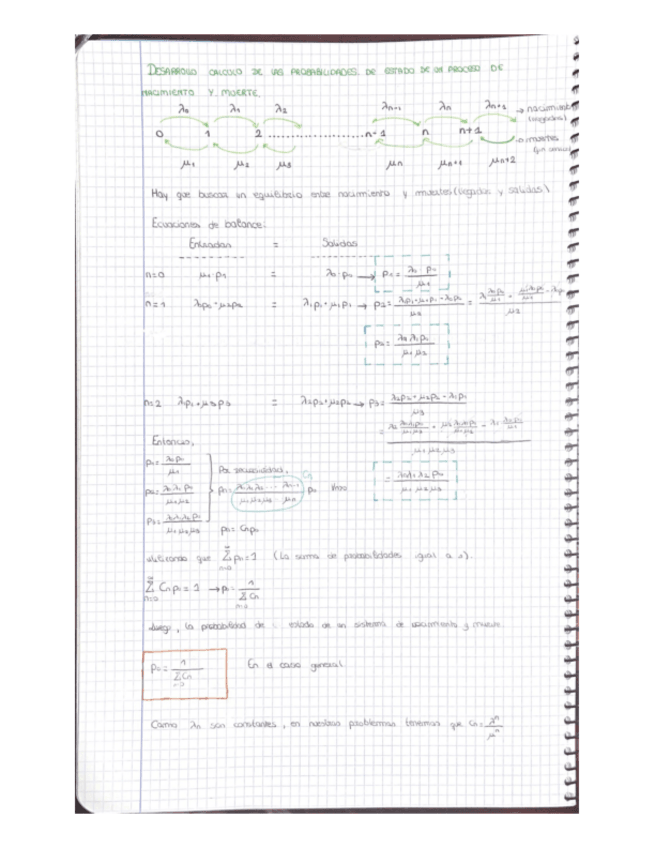 DESARROLLO CALCULO DE LAS PROBABILIDADES DE ESTADO DE UN PROCESO DE
NACIMIENTO Y MUERTE.
λ₀ λ₁ λ₂ λn-1 λn λn+1 → nacimiento
(llegadas)
0 1 2 ...................... n-1 n n+1 → muertes
μ₁ μ₂ μ₃ μn μn+1 μn+2
Hay que buscar un equilibrio entre nacimiento y muertes (llegadas y salidas)
Ecuaciones de balance:
Entradas = Salidas
n=0 μ₁·p₁ = λ₀·p₀ → p₁ = λ₀·p₀ / μ₁
n=1 λ₀p₀+μ₂p₂ = λ₁p₁+μ₁p₁ → p₂ = λ₁p₁+μ₁p₁-λ₀p₀ / μ₂
p₂ = λ₀λ₁p₀ / μ₁μ₂
n=2 λ₁p₁+μ₃p₃ = λ₂p₂+μ₂p₂ → p₃ = λ₂p₂+μ₂p₂-λ₁p₁ / μ₃
Entonces,
p₁ = λ₀p₀ / μ₁
p₂ = λ₀λ₁p₀ / μ₁μ₂
p₃ = λ₀λ₁λ₂p₀ / μ₁μ₂μ₃
Por recursividad, Cn
pn = λ₀λ₁λ₂...λn-1 / μ₁μ₂μ₃...μn p₀
= λ₀λ₁λ₂p₀ / μ₁μ₂μ₃
pn = Cnp₀
utilizando que Σ pn = 1 (La suma de probabilidades igual a 1).
Σ Cnp₀ = 1 → p₀ = 1 / Σ Cn
Luego, la probabilidad de estado de un sistema de nacimiento y muerte
p₀ = 1 / Σ Cn En el caso general
Como λn son constantes, en nuestros problemas tenemos que Cn = λⁿ / μⁿ